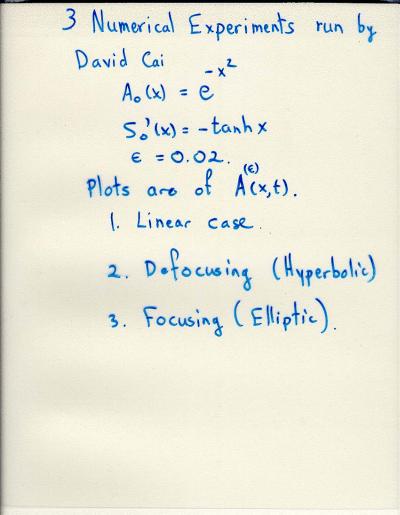 3 Numerical Experiments run by
David Cai
A₀(x) = e^{-x²}
S₀'(x) = -tanh x
ε = 0.02.
Plots are of A^{(ε)}(x,t).
1. Linear case.
2. Defocusing (Hyperbolic)
3. Focusing (Elliptic).